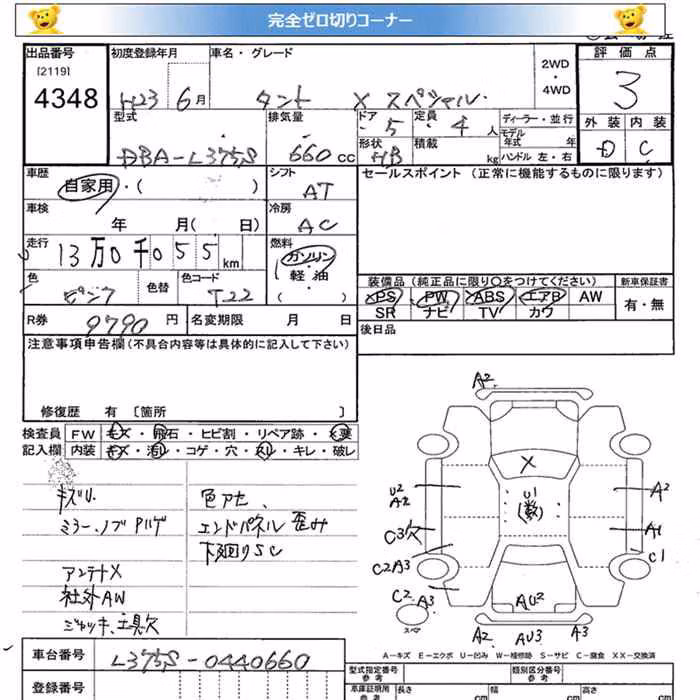 完全ゼロ切りコーナー
出品番号
[2119]
4348
初度登録年月
H23 6月
車名・グレード
タント X スペシャル
2WD
・
4WD
評価点
3
型式
DBA-L375S
排気量
660 cc
ドア
5
定員
4 人
ディーラー・並行
モデル
年式 年
形状
HB
積載
kg
ハンドル 左・右
外装
D
内装
C
車歴
自家用・( )
シフト
AT
セールスポイント (正常に機能するものに限ります)
車検
年 月( 日)
冷房
AC
走行
13万0千055 km
燃料
ガソリン
軽・油
( )
色
ピンク
色替
色コード
T22
装備品(純正品に限り○をつけてください)
PS PW ABS エアB AW
SR ナビ TV カワ
新車保証書
有・無
R券
9790 円
名変期限 月 日
後日品
注意事項申告欄(不具合内容等は具体的に記入して下さい)
修復歴 有 [箇所 ]
検査員
記入欄
FW キズ・飛石・ヒビ割・リペア跡・X要
内装 キズ・汚レ・コゲ・穴・スレ・キレ・破レ
キズU.
ミラー、ノブPハゲ
アンテナX
社外AW
ジャッキ、工具欠
色アセ、
エンドパネル歪み
下廻りSC
A2
X
U1
(数)
U2
A2
A2
C3欠
A1
C1
C2A3
C2 A3
AU2
スペア
A2 AU3 A3
A-キズ E-エクボ U-凹み W-補修跡 S-サビ C-腐食 XX-交換済
車台番号
L375S-0440660
登録番号
型式指定番号
類別区分番号
車庫証明用
長さ cm
幅 cm
高さ cm